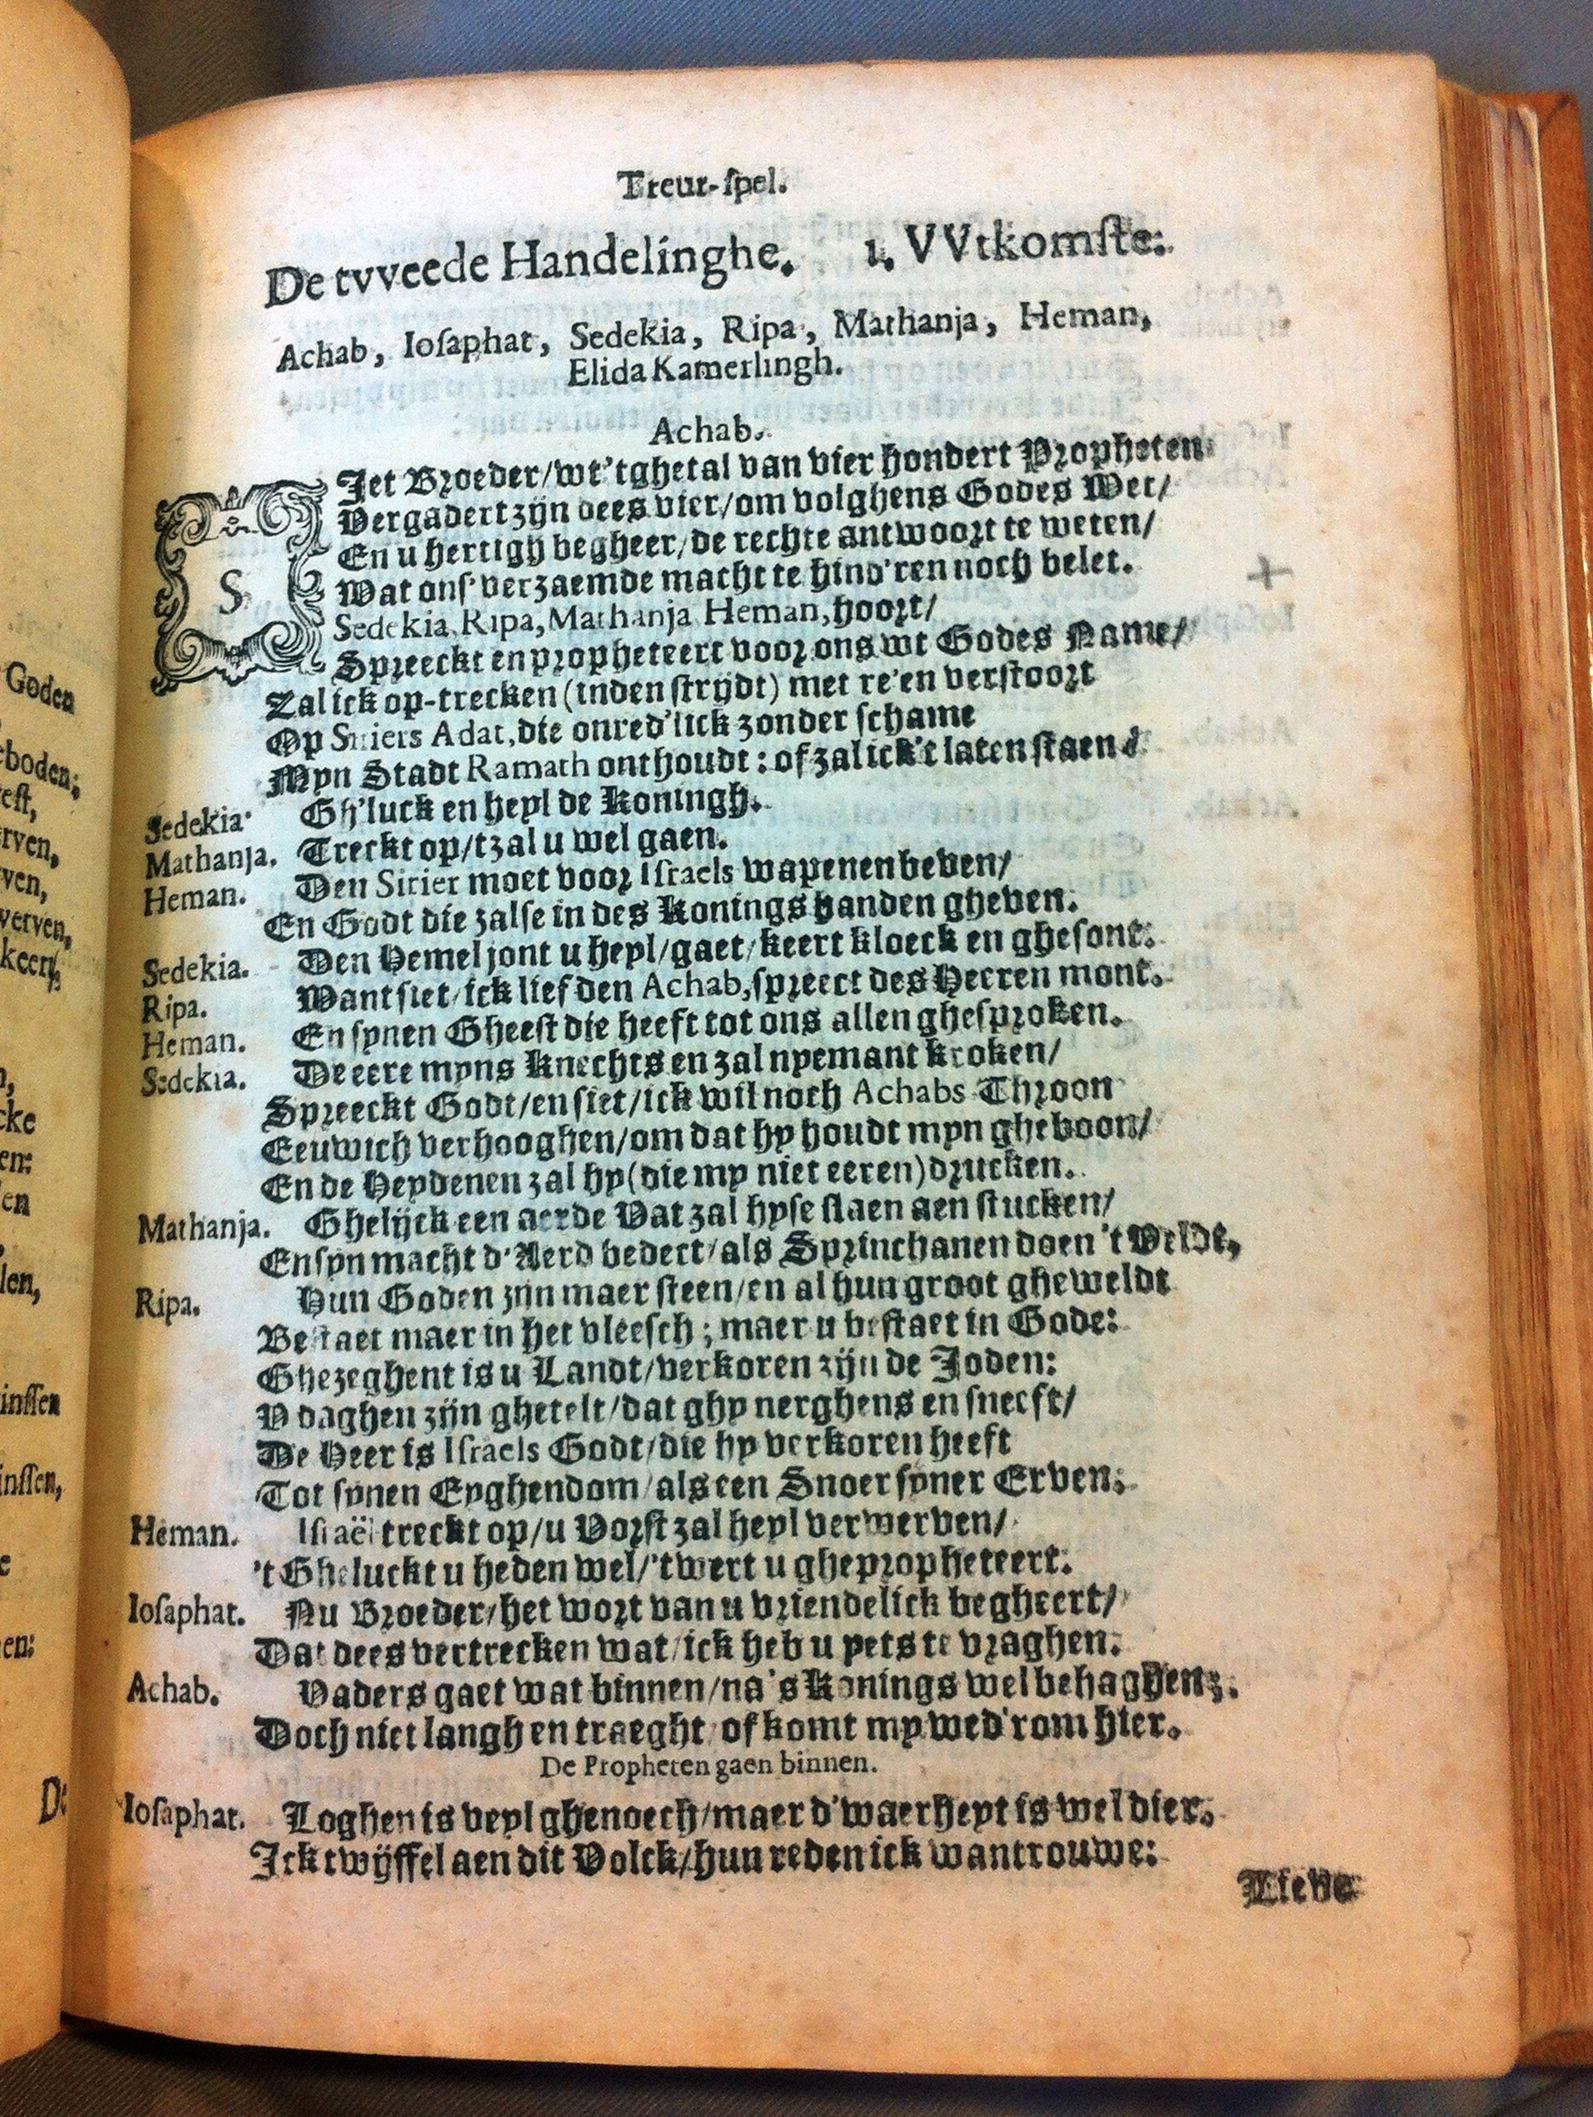 Treur-spel.
De tvveede Handelinghe. 1. VVtkomste.
Achab, Iosaphat, Sedekia, Ripa, Mathanja, Heman,
Elida Kamerlingh.
Achab.
SIet Broeder/wt'tghetal van vier hondert Propheten
Vergadert zijn dees vier/om volghens Godes Wet/
En u hertigh begheer/de rechte antwoort te weten/
Wat ons' verzaemde macht te hind'ren noch belet.
Sedekia, Ripa, Mathanja Heman, hoort/
Spreeckt en propheteert voor ons wt Godes Name/
Zal ick op-trecken (inden strijdt) met re'en verstoort
Op Siriers Adat, die onred'lick zonder schame
Myn Stadt Ramath onthoudt: of zal ick't laten staen?
Sedekia. Gh'luck en heyl de Koningh.
Mathanja. Treckt op/tzal u wel gaen.
Heman. Den Sirier moet voor Israels wapenen beven/
En Godt die zalse in des Konings handen gheven.
Sedekia. Den Hemel jont u heyl/gaet/keert kloeck en ghesont.
Ripa. Want siet/ick lief den Achab, spreect des Heeren mont.
Heman. En synen Gheest die heeft tot ons allen ghesproken.
Sedekia. De eere myns Knechts en zal nyemant kroken/
Spreeckt Godt/en siet/ick wil noch Achabs Throon
Eeuwich verhooghen/om dat hy houdt myn gheboon/
En de Heydenen zal hy (die my niet eeren) drucken.
Mathanja. Ghelijck een aerde Vat zal hyse slaen aen stucken/
En syn macht d'Aerd bedect/als Sprinchanen doen 't Veldt,
Ripa. Hun Goden zijn maer steen/en al hun groot gheweldt
Bestaet maer in het vleesch; maer u bestaet in Gode:
Ghezeghent is u Landt/verkoren zijn de Joden:
V daghen zijn ghetelt/dat ghy nerghens en sneeft/
De Heer is Israels Godt/die hy verkoren heeft
Tot synen Eyghendom/als een Snoer syner Erven:
Heman. Israël treckt op/u Vorst zal heyl verwerven/
't Gheluckt u heden wel/'twert u ghepropheteert.
Iosaphat. Nu Broeder/het wort van u vriendelick begheert/
Dat dees vertrecken wat/ick heb u yets te vraghen.
Achab. Vaders gaet wat binnen/na 's Konings wel behaghen;
Doch niet langh en traeght/of komt my wed'rom hier.
De Propheten gaen binnen.
Iosaphat. Loghen is veyl ghenoech/maer d'waerheyt is wel dier.
Ick twijffel aen dit Volck/hun reden ick wantrouwe:
Lieve